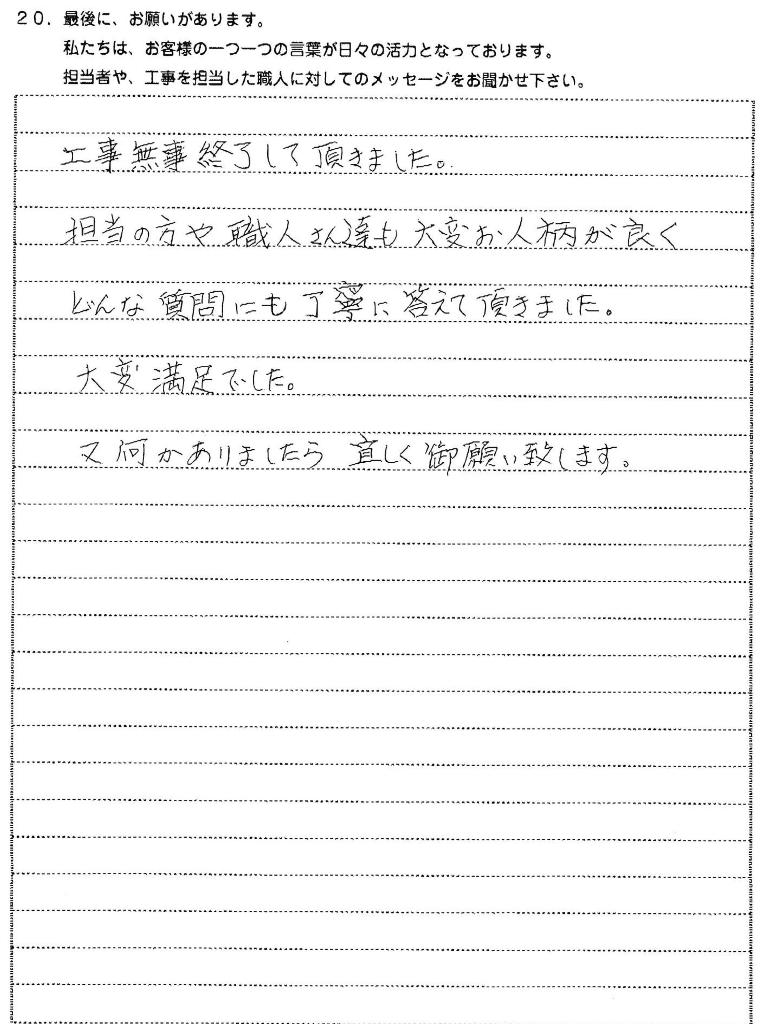 20．最後に、お願いがあります。
私たちは、お客様の一つ一つの言葉が日々の活力となっております。
担当者や、工事を担当した職人に対してのメッセージをお聞かせ下さい。
工事無事終了して頂きました。
担当の方や職人さん達も大変お人柄が良く
どんな質問にも丁寧に答えて頂きました。
大変満足でした。
又何かありましたら宜しく御願い致します。